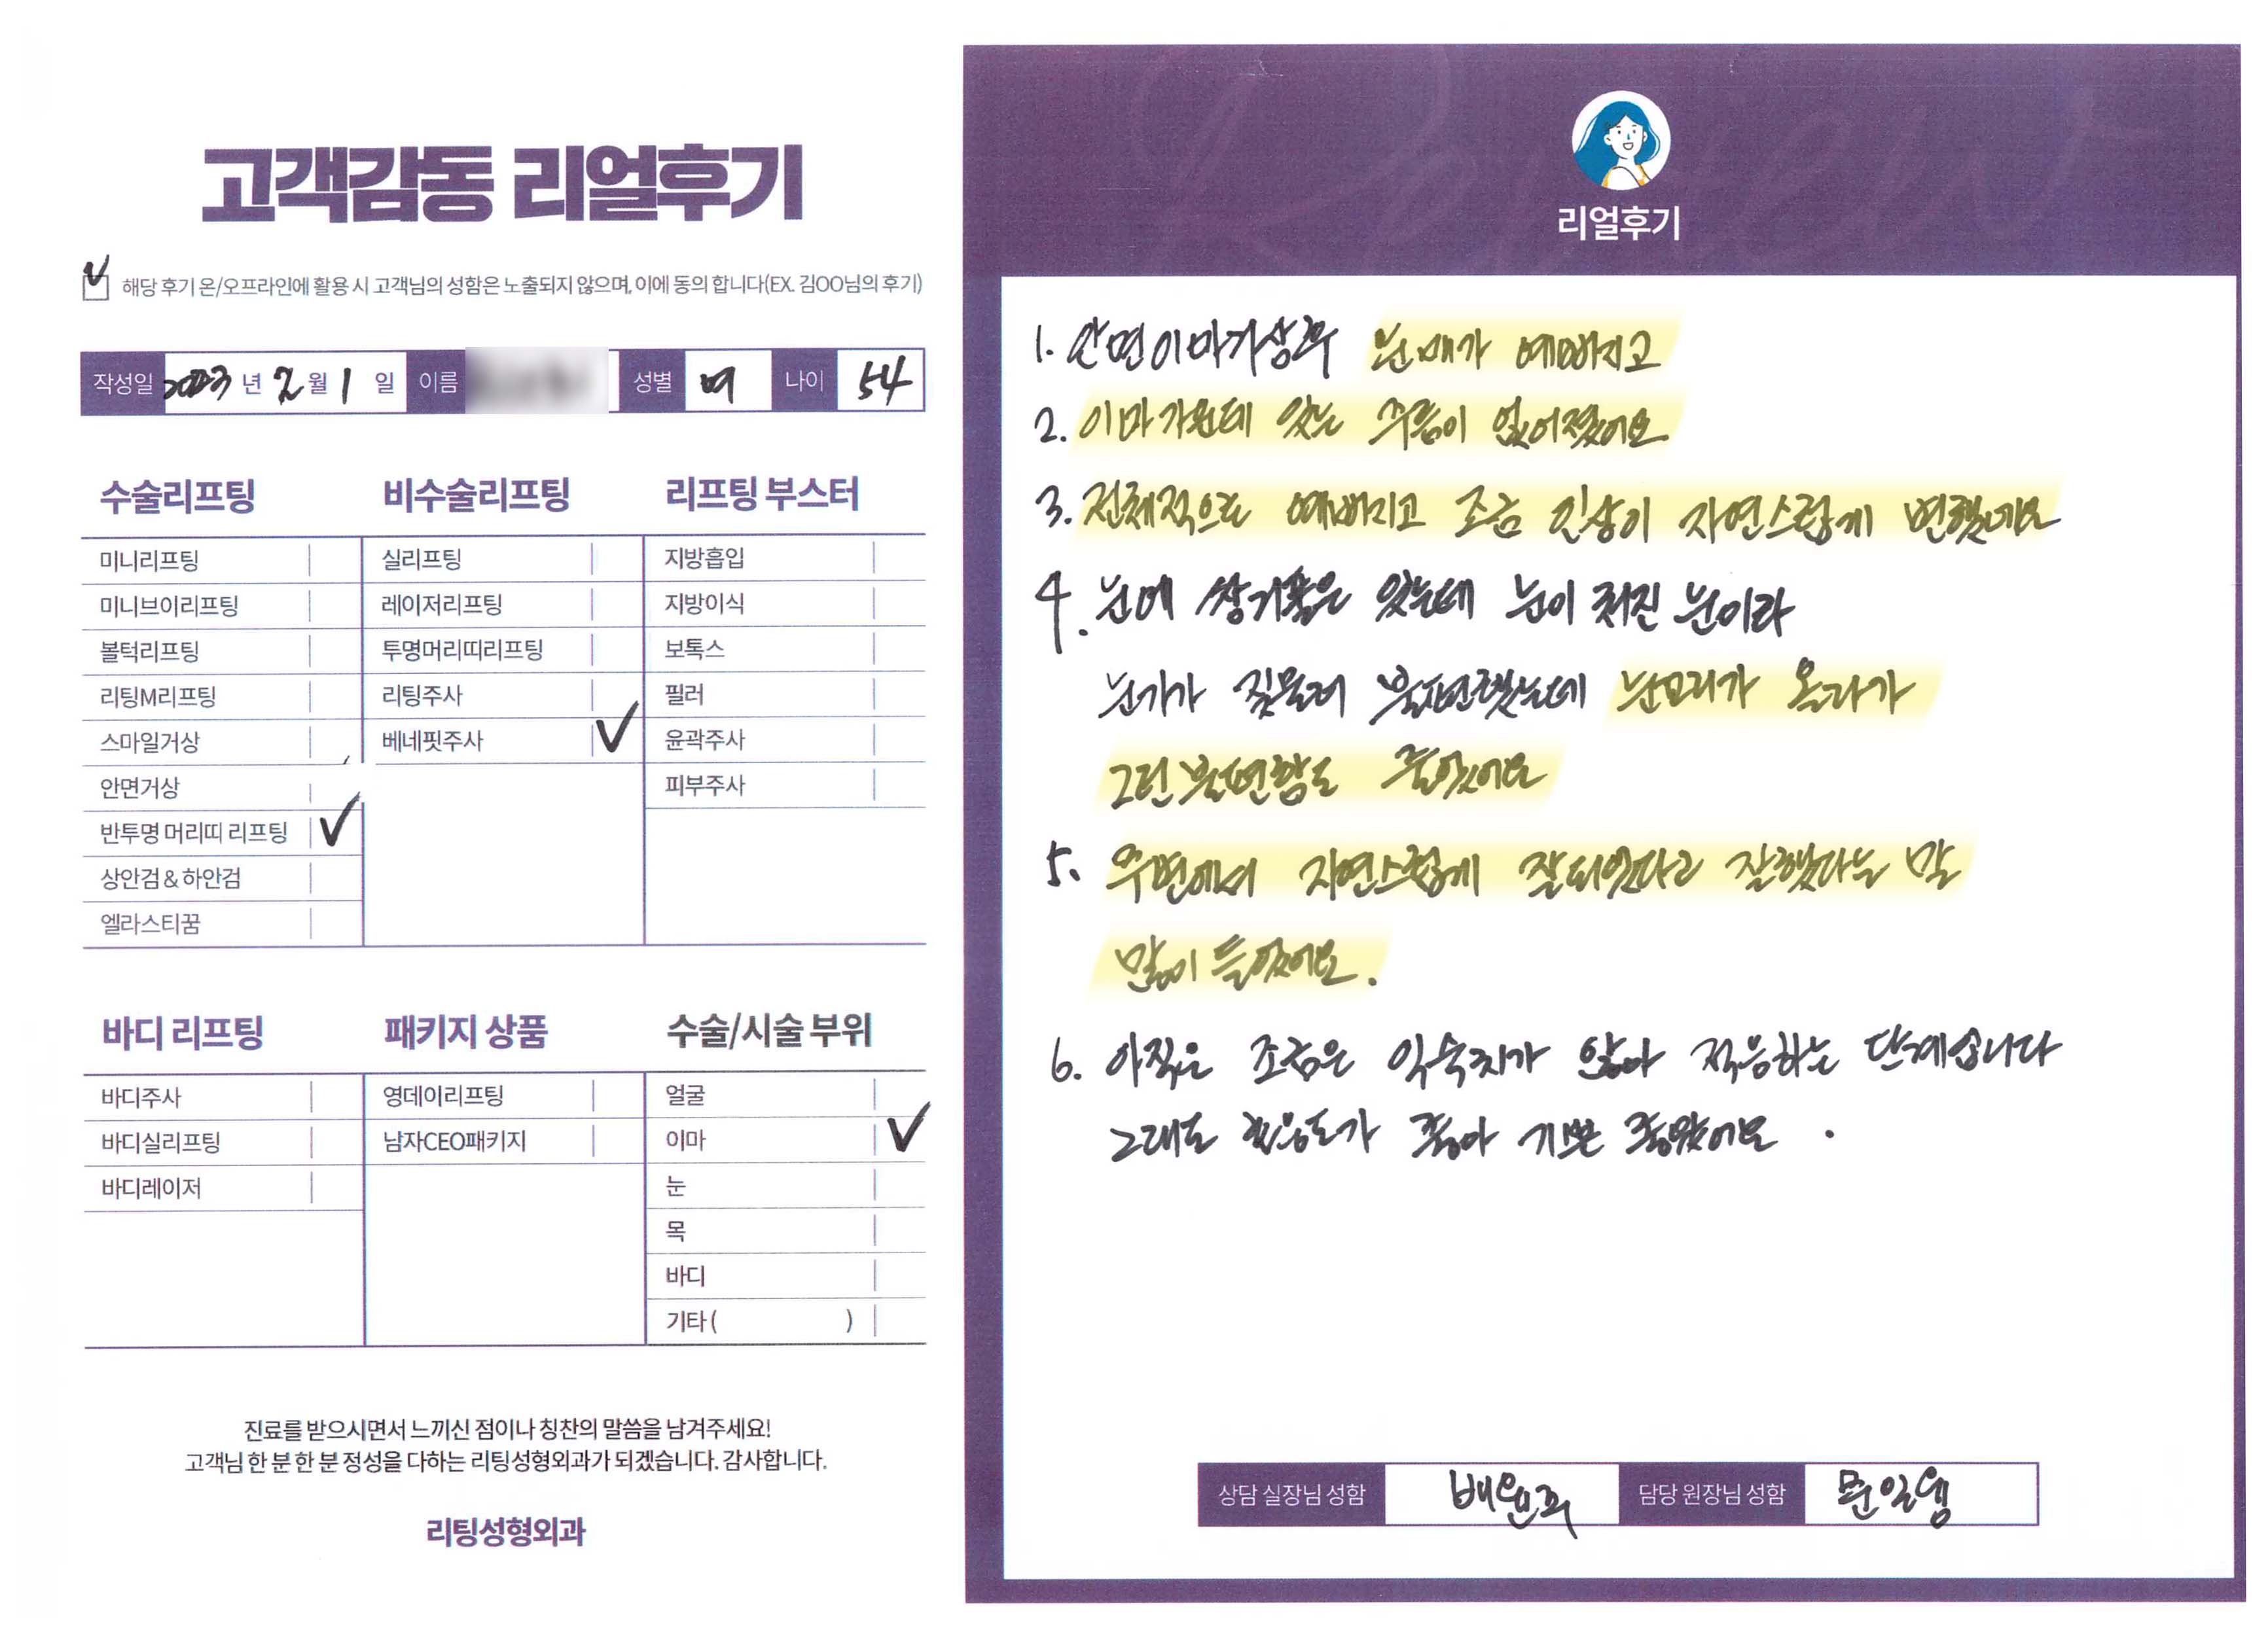 고객감동 리얼후기
해당 후기 온/오프라인에 활용 시 고객님의 성함은 노출되지 않으며, 이에 동의 합니다(EX. 김OO님의 후기)
작성일 2023 년 2 월 1 일 이름 성별 여 나이 54
수술리프팅
미니리프팅
미니브이리프팅
볼턱리프팅
리팅M리프팅
스마일거상
안면거상
반투명 머리띠 리프팅
상안검 & 하안검
엘라스티꿈
비수술리프팅
실리프팅
레이저리프팅
투명머리띠리프팅
리팅주사
베네핏주사
리프팅 부스터
지방흡입
지방이식
보톡스
필러
윤곽주사
피부주사
바디 리프팅
바디주사
바디실리프팅
바디레이저
패키지 상품
영데이리프팅
남자CEO패키지
수술/시술 부위
얼굴
이마
눈
목
바디
기타 ( )
진료를 받으시면서 느끼신 점이나 칭찬의 말씀을 남겨주세요!
고객님 한 분 한 분 정성을 다하는 리팅성형외과가 되겠습니다. 감사합니다.
리팅성형외과
리얼후기
1. 안면이마거상후 눈매가 예뻐지고
2. 이마 가운데 있는 주름이 없어졌어요.
3. 전체적으로 예뻐지고 조금 인상이 자연스럽게 변했네요
4. 눈에 쌍거풀은 있는데 눈이 처진 눈이라
눈가가 짓물러 불편했는데 눈꼬리가 올라가
그런 불편함도 줄었어요
5. 주변에서 자연스럽게 잘되었다고 잘했다는 말
많이 들었어요.
6. 아직은 조금은 익숙치가 않아 적응하는 단계입니다
그래도 호응도가 좋아 기분 좋았어요.
상담 실장님 성함 담당 원장님 성함